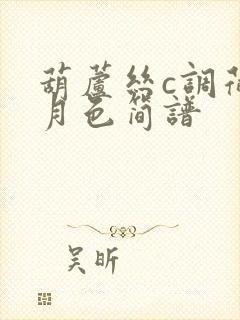 葫蘆絲c調荷
月色簡譜
吴昕